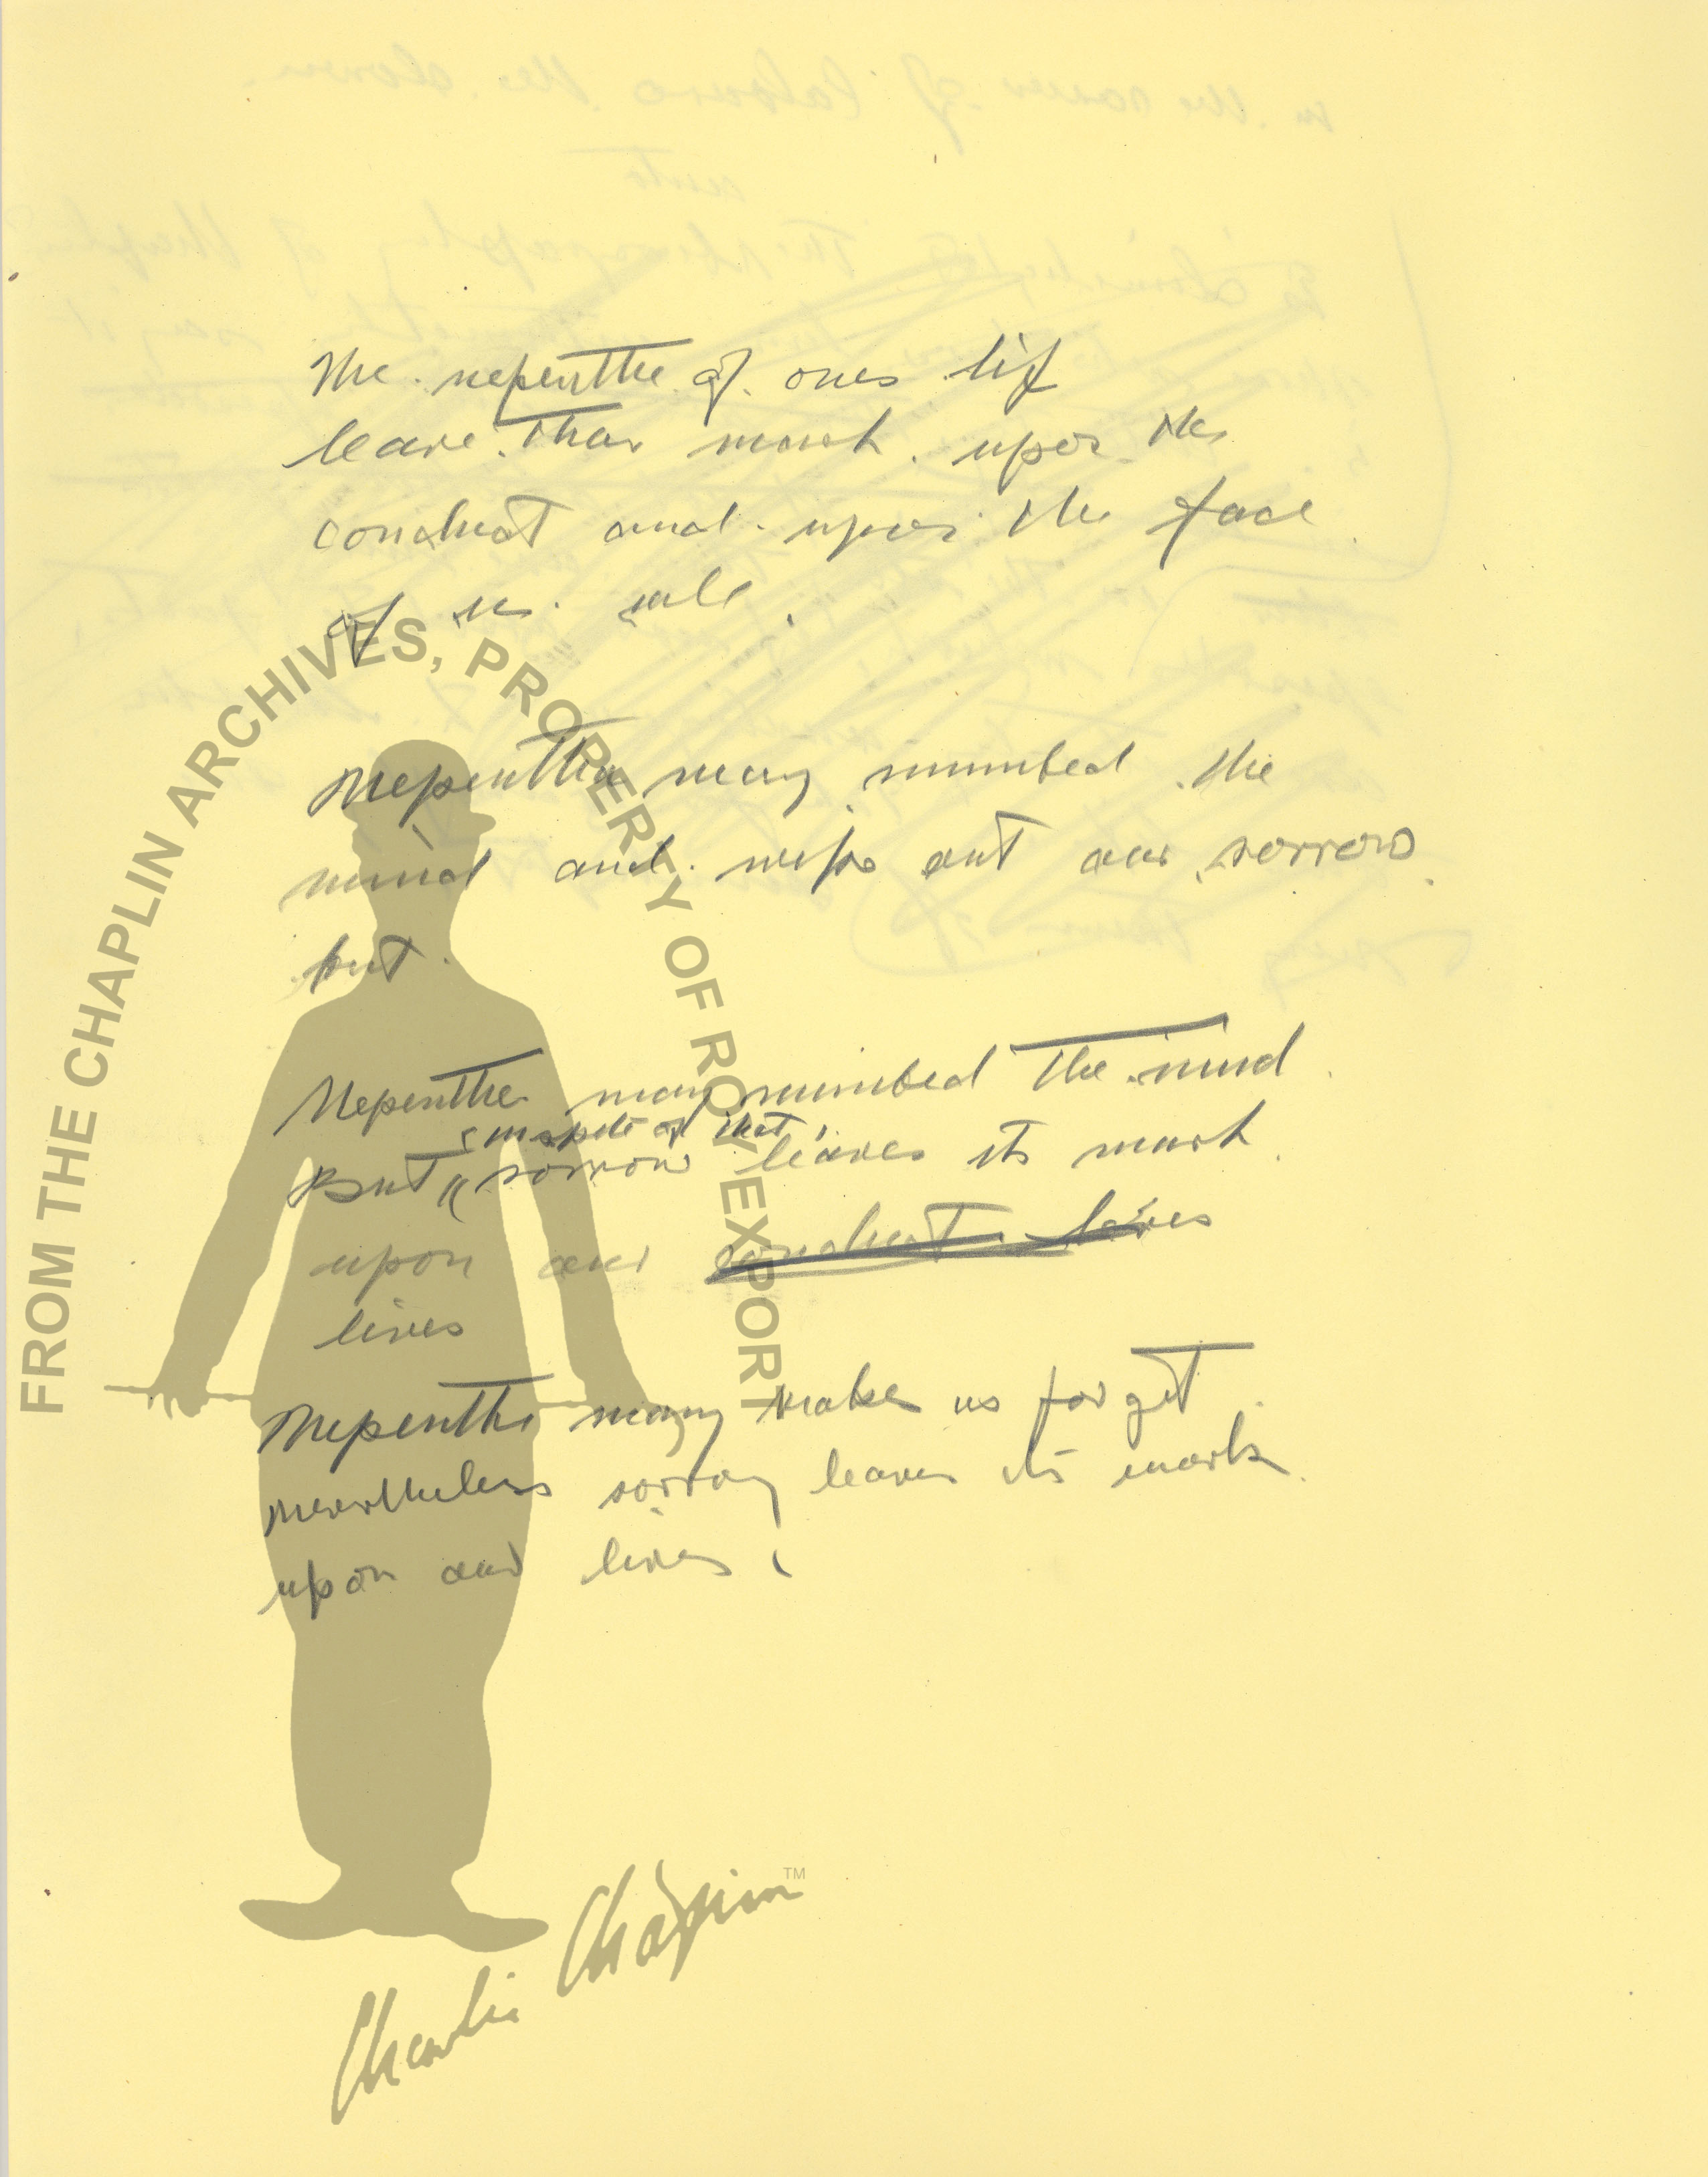 The nepenthe of ones lif
leave thar mark upon the
conduct and upon the face
of us all.
Nepenthe may numbed the
mind and wipe out our sorrow
but
Nepenthe may numbed the mind
in spite of that,
But sorrow leaves its mark
upon our conduct lives
lives
Nepenthe may make us forget
nevertheless sorrow leaves its mark
upon our lives.
FROM THE CHAPLIN ARCHIVES, PROPERTY OF ROY EXPORT
Charlie Chaplin™